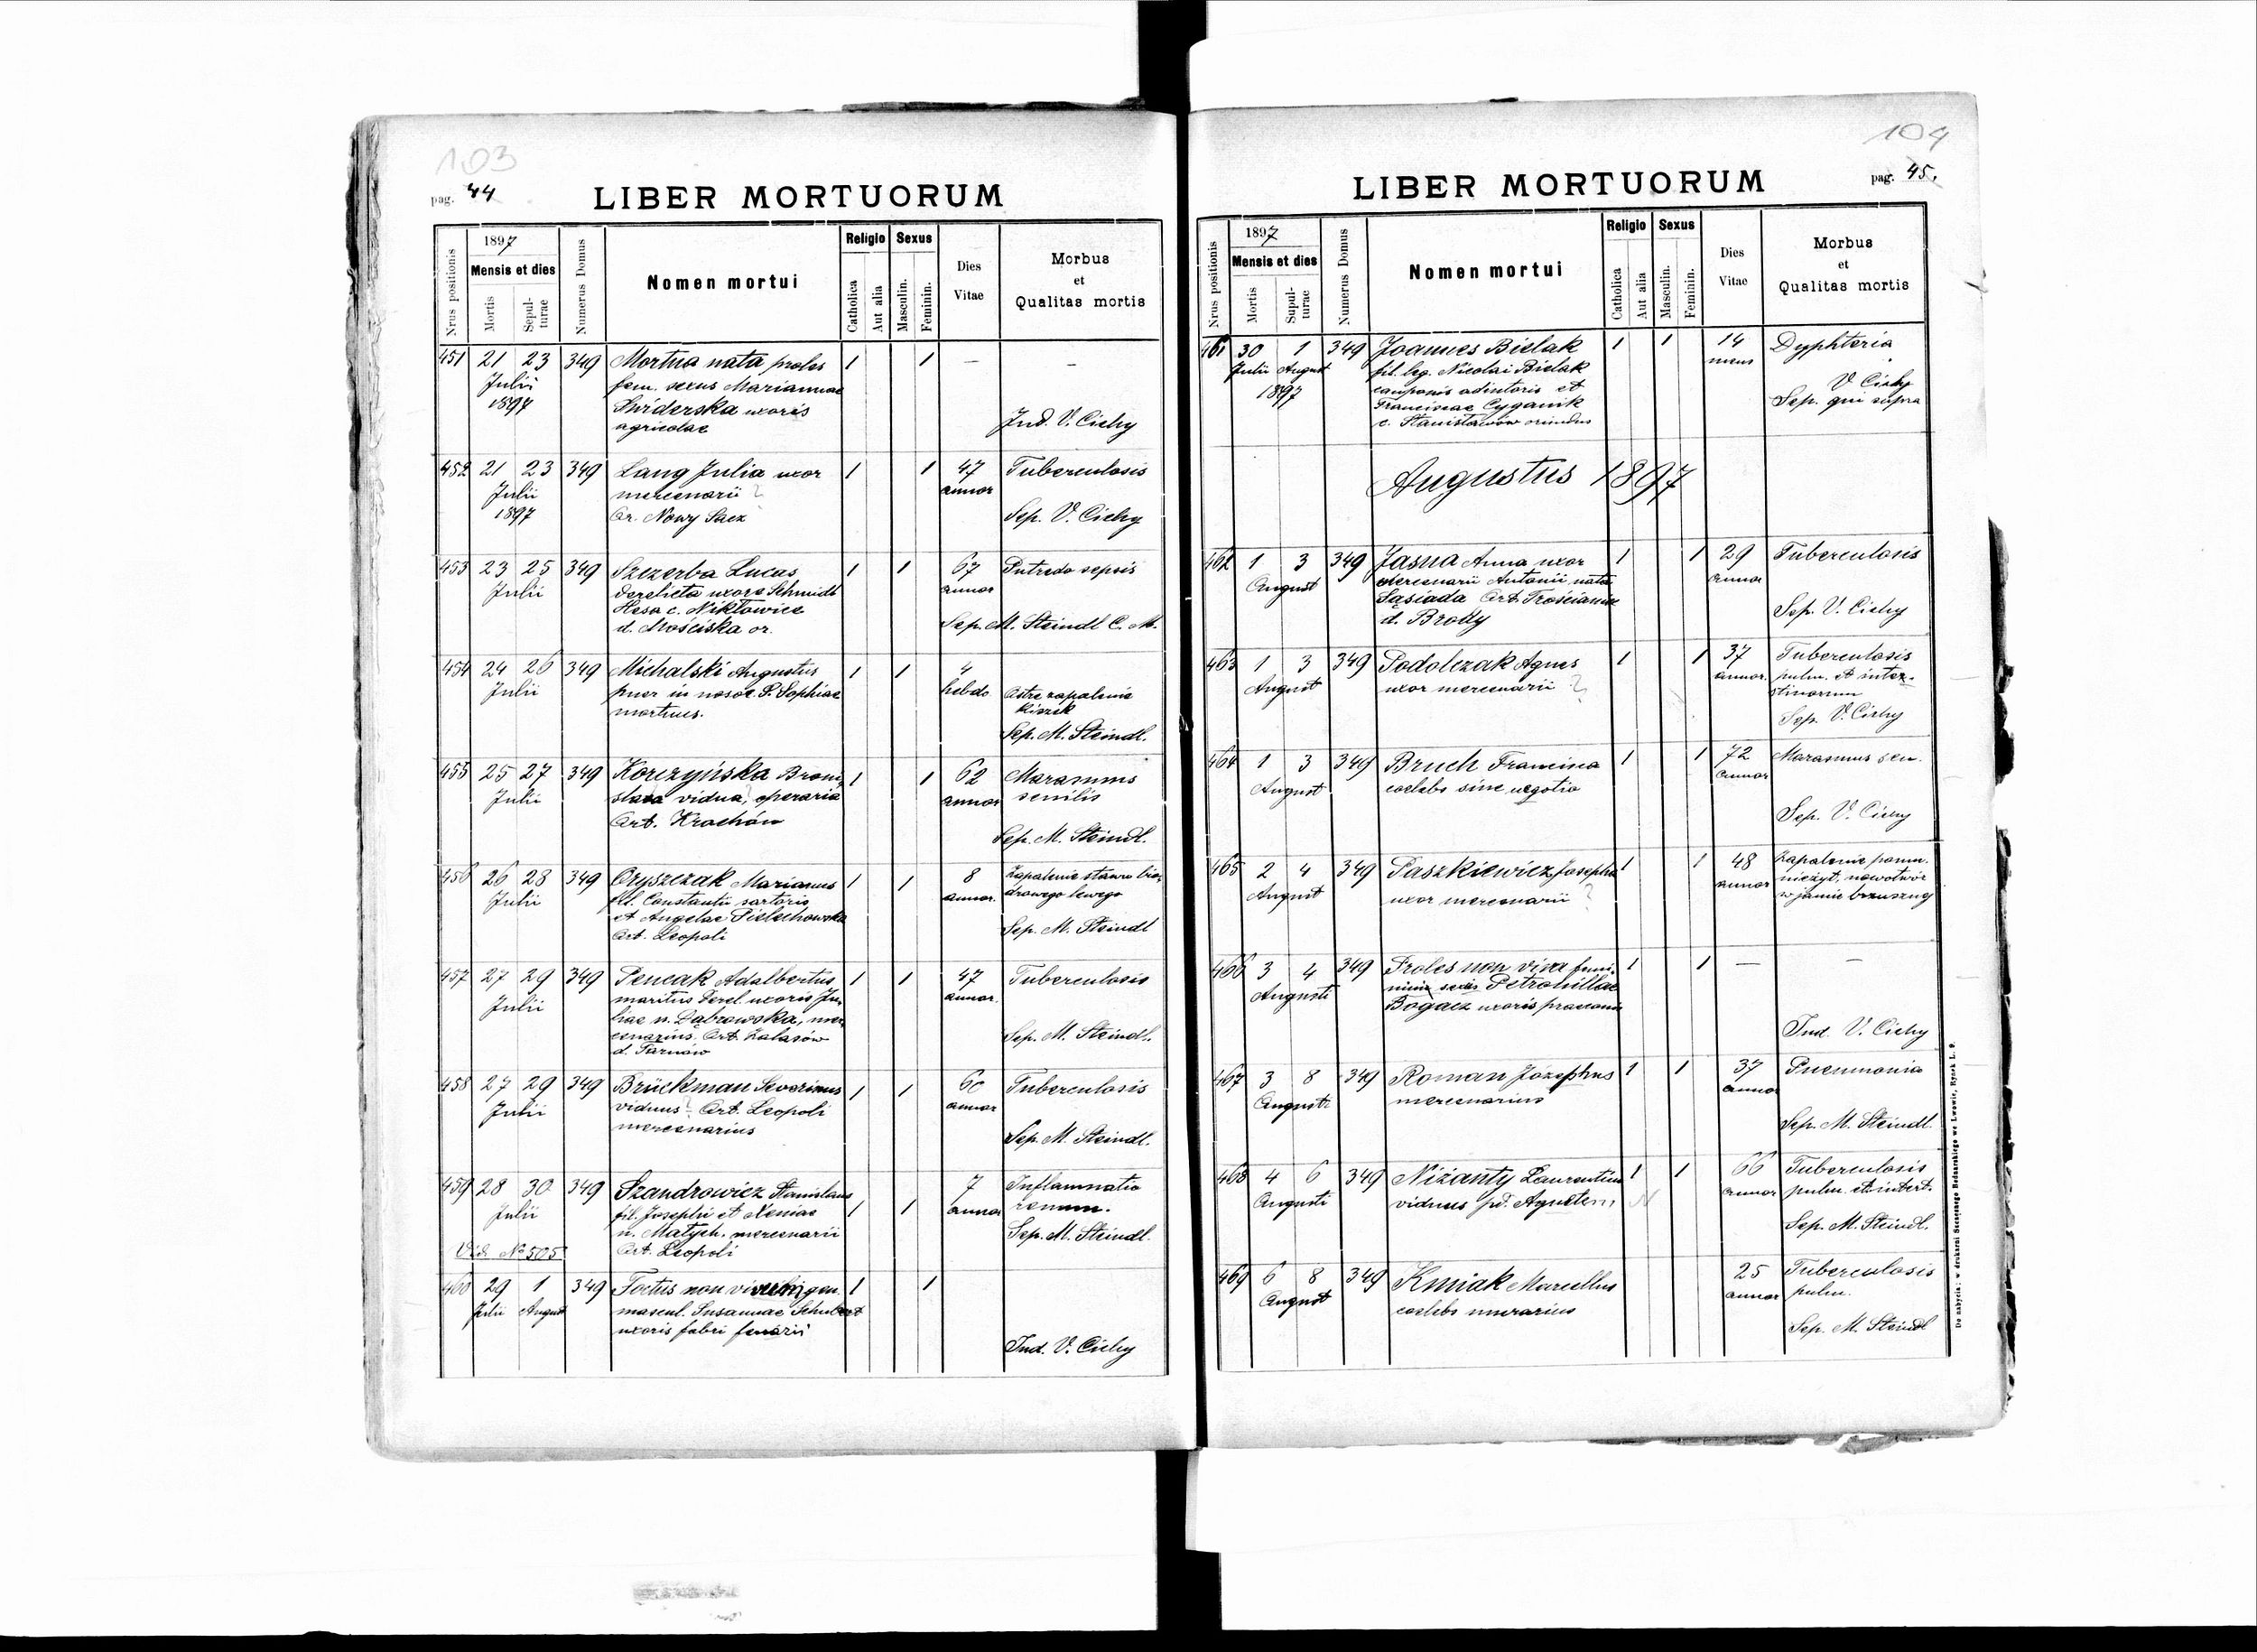 103
pag. 44
LIBER MORTUORUM
Nrus positionis
1897
Mensis et dies
Mortis
Sepulturae
Numerus Domus
Nomen mortui
Religio
Catholica
Aut alia
Sexus
Masculin.
Feminin.
Dies
Vitae
Morbus
et
Qualitas mortis
451 21 23 349 Mortua nata proles 1 1 — —
Julii fem. sexus Mariannae
1897 Swiderska uxoris
agricolae Ind. V. Cichy
452 21 23 349 Lang Julia uxor 1 1 47 Tuberculosis
Julii mercenarii ? annor
1897 Or. Nowy Sacz Sep. V. Cichy
453 23 25 349 Szczerba Lucas 1 1 67 Putredo sepsis
Julii derelicta uxore Schmidt annor
Hesa c. Niktowice
d. Mościska or. Sep. M. Steindl C. M.
454 24 26 349 Michalski Augustus 1 1 4
Julii puer in nosoc. S. Sophiae hebdo. Ostre zapalenie
mortuus. kiszek
Sep. M. Steindl.
455 25 27 349 Korczyńska Broni- 1 1 62 Marasmus
Julii slava vidua, operaria annor senilis
Ort. Krachów
Sep. M. Steindl.
456 26 28 349 Oryszczak Marianus 1 1 8 Zapalenie stawu bio-
Julii fil. Constantii sartoris annor. drowego lewego
et Angelae Pielechowska
Ort. Leopoli Sep. M. Steindl
457 27 29 349 Pencak Adalbertus 1 1 47 Tuberculosis
Julii maritus derel. uxoris Ju- annor.
liae n. Dąbrowska, mer-
cenarius. Ort. Zalasów Sep. M. Steindl.
d. Tarnów
458 27 29 349 Brückman Severinus 1 1 60 Tuberculosis
Julii viduus ? Ort. Leopoli annor
mercenarius Sep. M. Steindl.
459 28 30 349 Szandrowicz Stanislaus 1 1 7 Inflammatio
Julii fil. Josephi et Xeniae annor renum.
n. Matych. mercenarii Sep. M. Steindl.
Vid. No 505 Ort. Leopoli
460 29 1 349 Foetus non vivus gen. 1 1
Julii August mascul. Susannae Schubert
uxoris fabri ferrarii
Ind. V. Cichy
104
pag. 45.
LIBER MORTUORUM
Nrus positionis
1897
Mensis et dies
Mortis
Sepulturae
Numerus Domus
Nomen mortui
Religio
Catholica
Aut alia
Sexus
Masculin.
Feminin.
Dies
Vitae
Morbus
et
Qualitas mortis
461 30 1 349 Joannes Bielak 1 1 14 Dyphteria
Julii August fil. leg. Nicolai Bielak mens
1897 cauponis adiutoris et V. Cichy
Franciscae Cyganik Sep. qui supra
c. Stanisławów oriundus
Augustus 1897
462 1 3 349 Jasna Anna uxor 1 1 29 Tuberculosis
August mercenarii Antonii nata annor
Sąsiada Ort. Trościaniec
d. Brody Sep. V. Cichy
463 1 3 349 Podolczak Agnes 1 1 37 Tuberculosis
August uxor mercenarii ? annor. pulm. et inte-
stinorum
Sep. V. Cichy
464 1 3 349 Bruch Francisca 1 1 72 Marasmus sen.
August caelebs sine negotio annor
Sep. V. Cichy
465 2 4 349 Paszkiewicz Josepha 1 1 48 Zapalenie
August uxor mercenarii ? annor nieżyt, nowotwór
w jamie brzusznej
466 3 4 349 Proles non viva femi- 1 1 — —
Augusti nini sexus Petronillae
Bogacz uxoris praeconis
Ind. V. Cichy
467 3 8 349 Roman Józephus 1 1 37 Pneumonia
Augusti mercenarius annor
Sep. M. Steindl.
468 4 6 349 Niżanty Laurentius 1 1 66 Tuberculosis
Augusti viduus pd. Agnetem annor pulm. et intest.
Sep. M. Steindl.
469 6 8 349 Kmiak Marcellus 25 Tuberculosis
August caelebs murarius annor pulm.
Sep. M. Steindl
Do nabycia: w drukarni Szczęsnego Bednarskiego we Lwowie, Rynek L. 9.